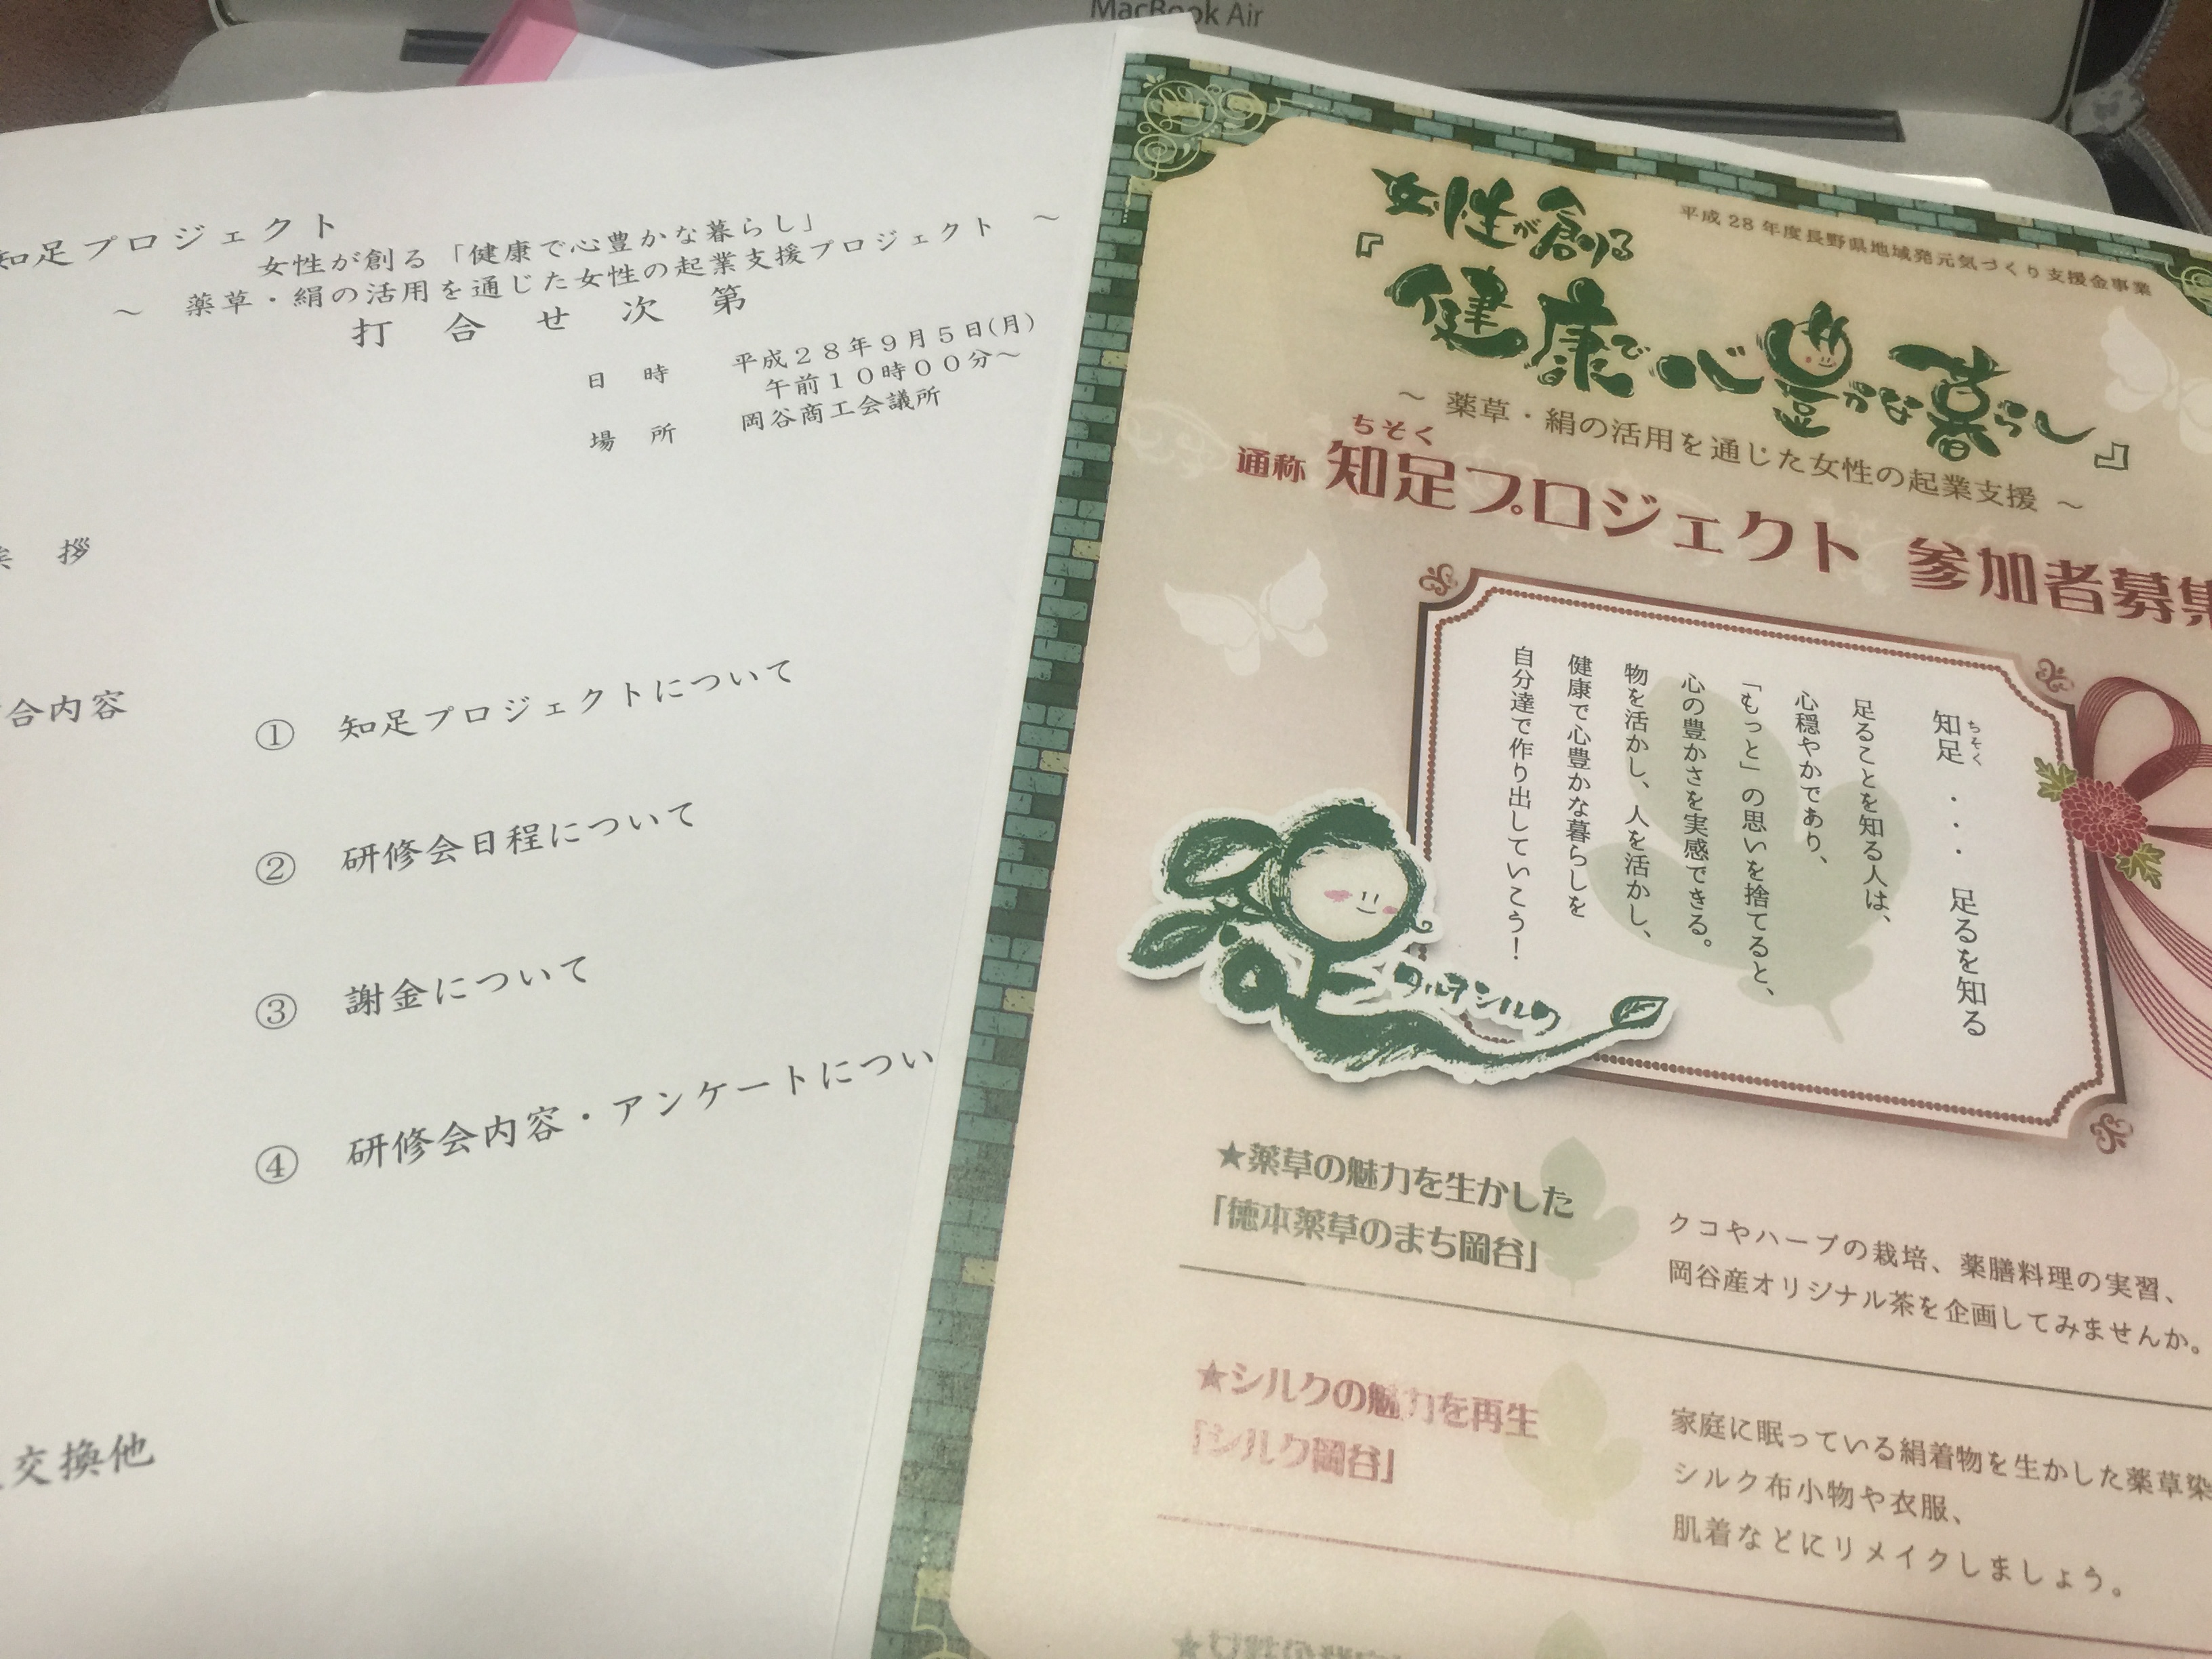 MacBook Air
知足プロジェクト
女性が創る「健康で心豊かな暮らし」
～　薬草・絹の活用を通じた女性の起業支援プロジェクト　～
打合せ次第
日時　平成２８年９月５日(月)
午前１０時００分～
場所　岡谷商工会議所
拶
合内容
① 知足プロジェクトについて
② 研修会日程について
③ 謝金について
④ 研修会内容・アンケートについ
交換他
平成28年度長野県地域発元気づくり支援金事業
女性が創る
『健康で心豊かな暮らし』
～ 薬草・絹の活用を通じた女性の起業支援 ～
ちそく
通称 知足プロジェクト 参加者募集
ちそく
知足・・・足るを知る
足ることを知る人は、
心穏やかであり、
「もっと」の思いを捨てると、
心の豊かさを実感できる。
物を活かし、人を活かし、
健康で心豊かな暮らしを
自分達で作り出していこう！
タルヲシルク
★薬草の魅力を生かした
「徳本薬草のまち岡谷」
クコやハーブの栽培、薬膳料理の実習、
岡谷産オリジナル茶を企画してみませんか。
★シルクの魅力を再生
「シルク岡谷」
家庭に眠っている絹着物を生かした薬草染
シルク布小物や衣服、
肌着などにリメイクしましょう。